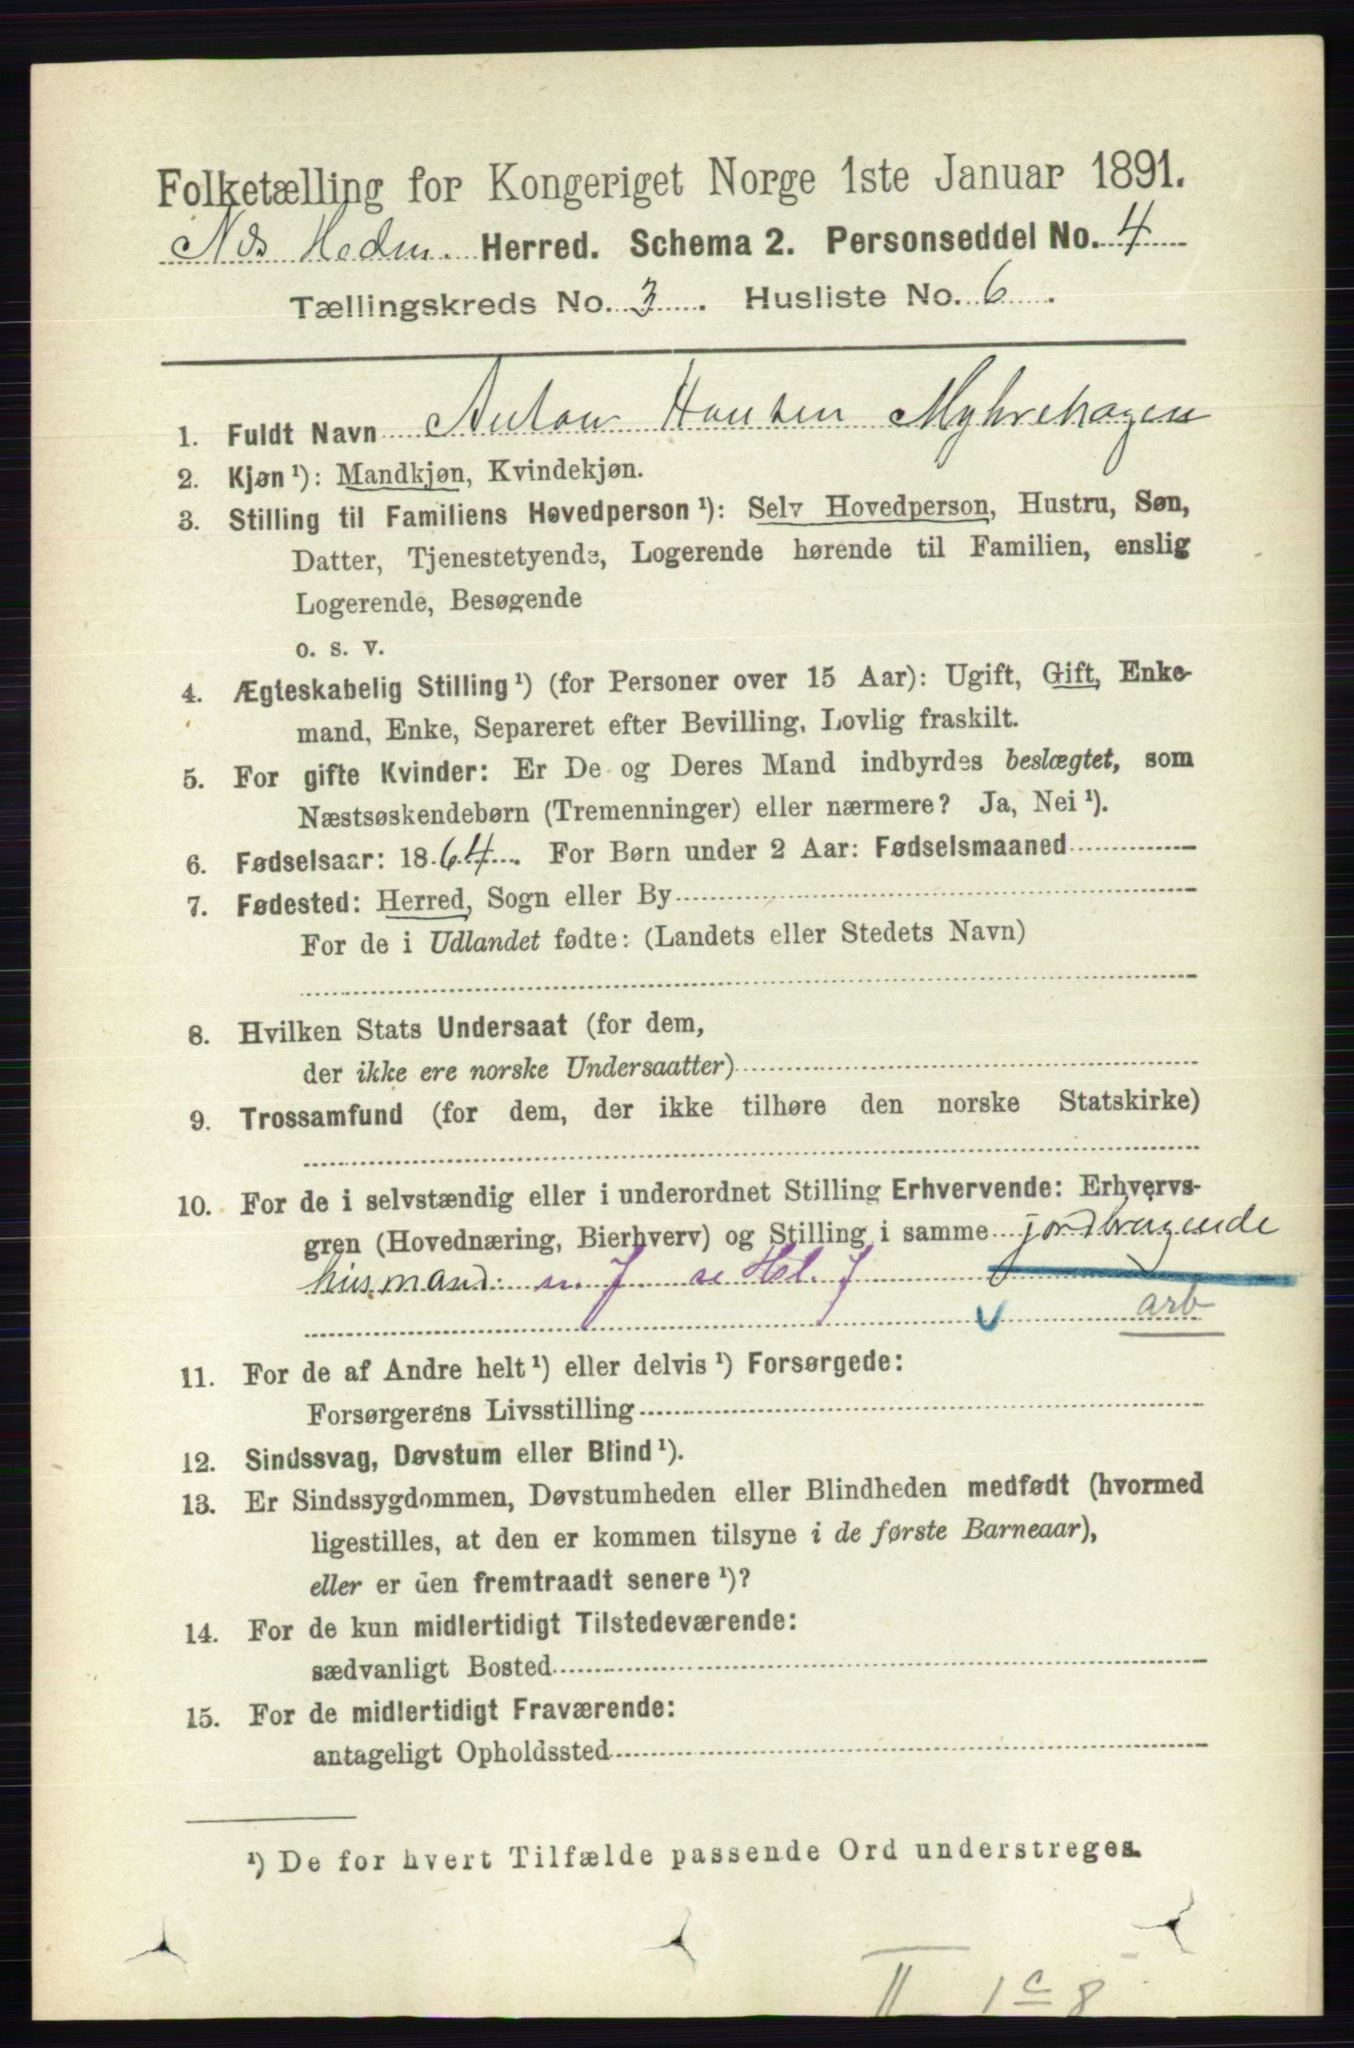 Folketælling for Kongeriget Norge 1ste Januar 1891.
Nes Hedm. Herred. Schema 2. Personseddel No. 4
Tællingskreds No. 3. Husliste No. 6.
1. Fuldt Navn Anton Hansen Myhrehagen
2. Kjøn ¹): Mandkjøn, Kvindekjøn.
3. Stilling til Familiens Hovedperson ¹): Selv Hovedperson, Hustru, Søn,
Datter, Tjenestetyende, Logerende hørende til Familien, enslig
Logerende, Besøgende
o. s. v.
4. Ægteskabelig Stilling ¹) (for Personer over 15 Aar): Ugift, Gift, Enke-
mand, Enke, Separeret efter Bevilling, Lovlig fraskilt.
5. For gifte Kvinder: Er De og Deres Mand indbyrdes beslægtet, som
Næstsøskendebørn (Tremenninger) eller nærmere? Ja, Nei ¹).
6. Fødselsaar: 1864. For Børn under 2 Aar: Fødselsmaaned
7. Fødested: Herred, Sogn eller By
For de i Udlandet fødte: (Landets eller Stedets Navn)
8. Hvilken Stats Undersaat (for dem,
der ikke ere norske Undersaatter)
9. Trossamfund (for dem, der ikke tilhøre den norske Statskirke)
10. For de i selvstændig eller i underordnet Stilling Erhvervende: Erhvervs-
gren (Hovednæring, Bierhverv) og Stilling i samme jordbrugende
husmand: m. J se Hsl. J
arb
11. For de af Andre helt ¹) eller delvis ¹) Forsørgede:
Forsørgerens Livsstilling
12. Sindssvag, Døvstum eller Blind ¹).
13. Er Sindssygdommen, Døvstumheden eller Blindheden medfødt (hvormed
ligestilles, at den er kommen tilsyne i de første Barneaar),
eller er den fremtraadt senere ¹)?
14. For de kun midlertidigt Tilstedeværende:
sædvanligt Bosted
15. For de midlertidigt Fraværende:
antageligt Opholdssted
¹) De for hvert Tilfælde passende Ord understreges.
II 1 c 8